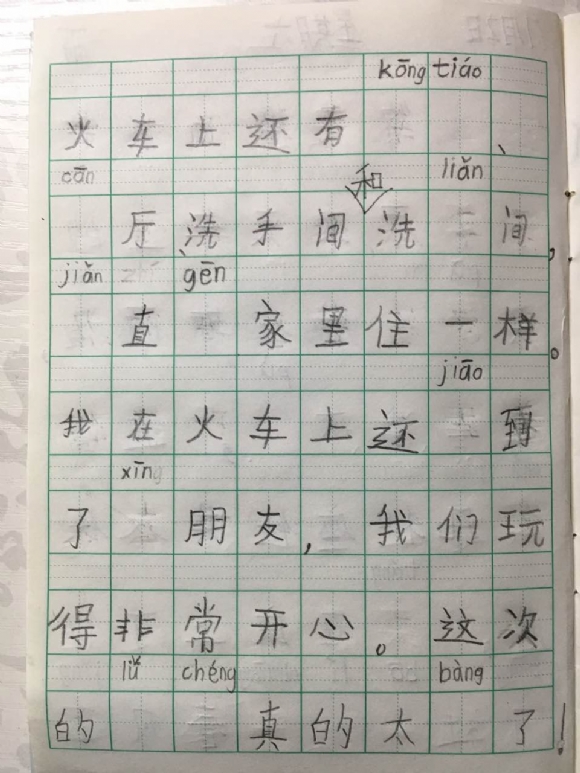 kōng tiáo
火车上还有、
cān 和 liǎn
厅、洗手间洗间，
jiǎn gēn
直家里住一样。
jiāo
我在火车上还到
xīng
了朋友，我们玩
得非常开心。这次
lǚ chéng bàng
的真的太了！